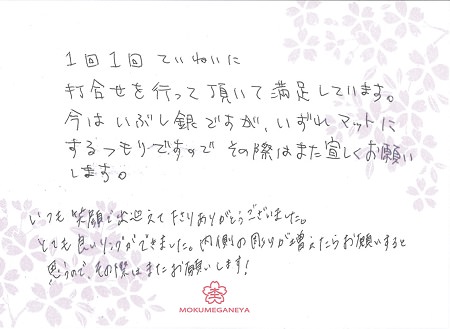 1回1回 ていねいに
打合せを行って頂いて満足しています。
今はいぶし銀ですが、いずれマットに
するつもりですので その際はまた宜しくお願い
します。
いつも笑顔で出迎えて下さりありがとうございました。
とても良いリングができました。内側の彫りが増えたらお願いすると
思うので、その際はまたお願いします!
MOKUMEGANEYA